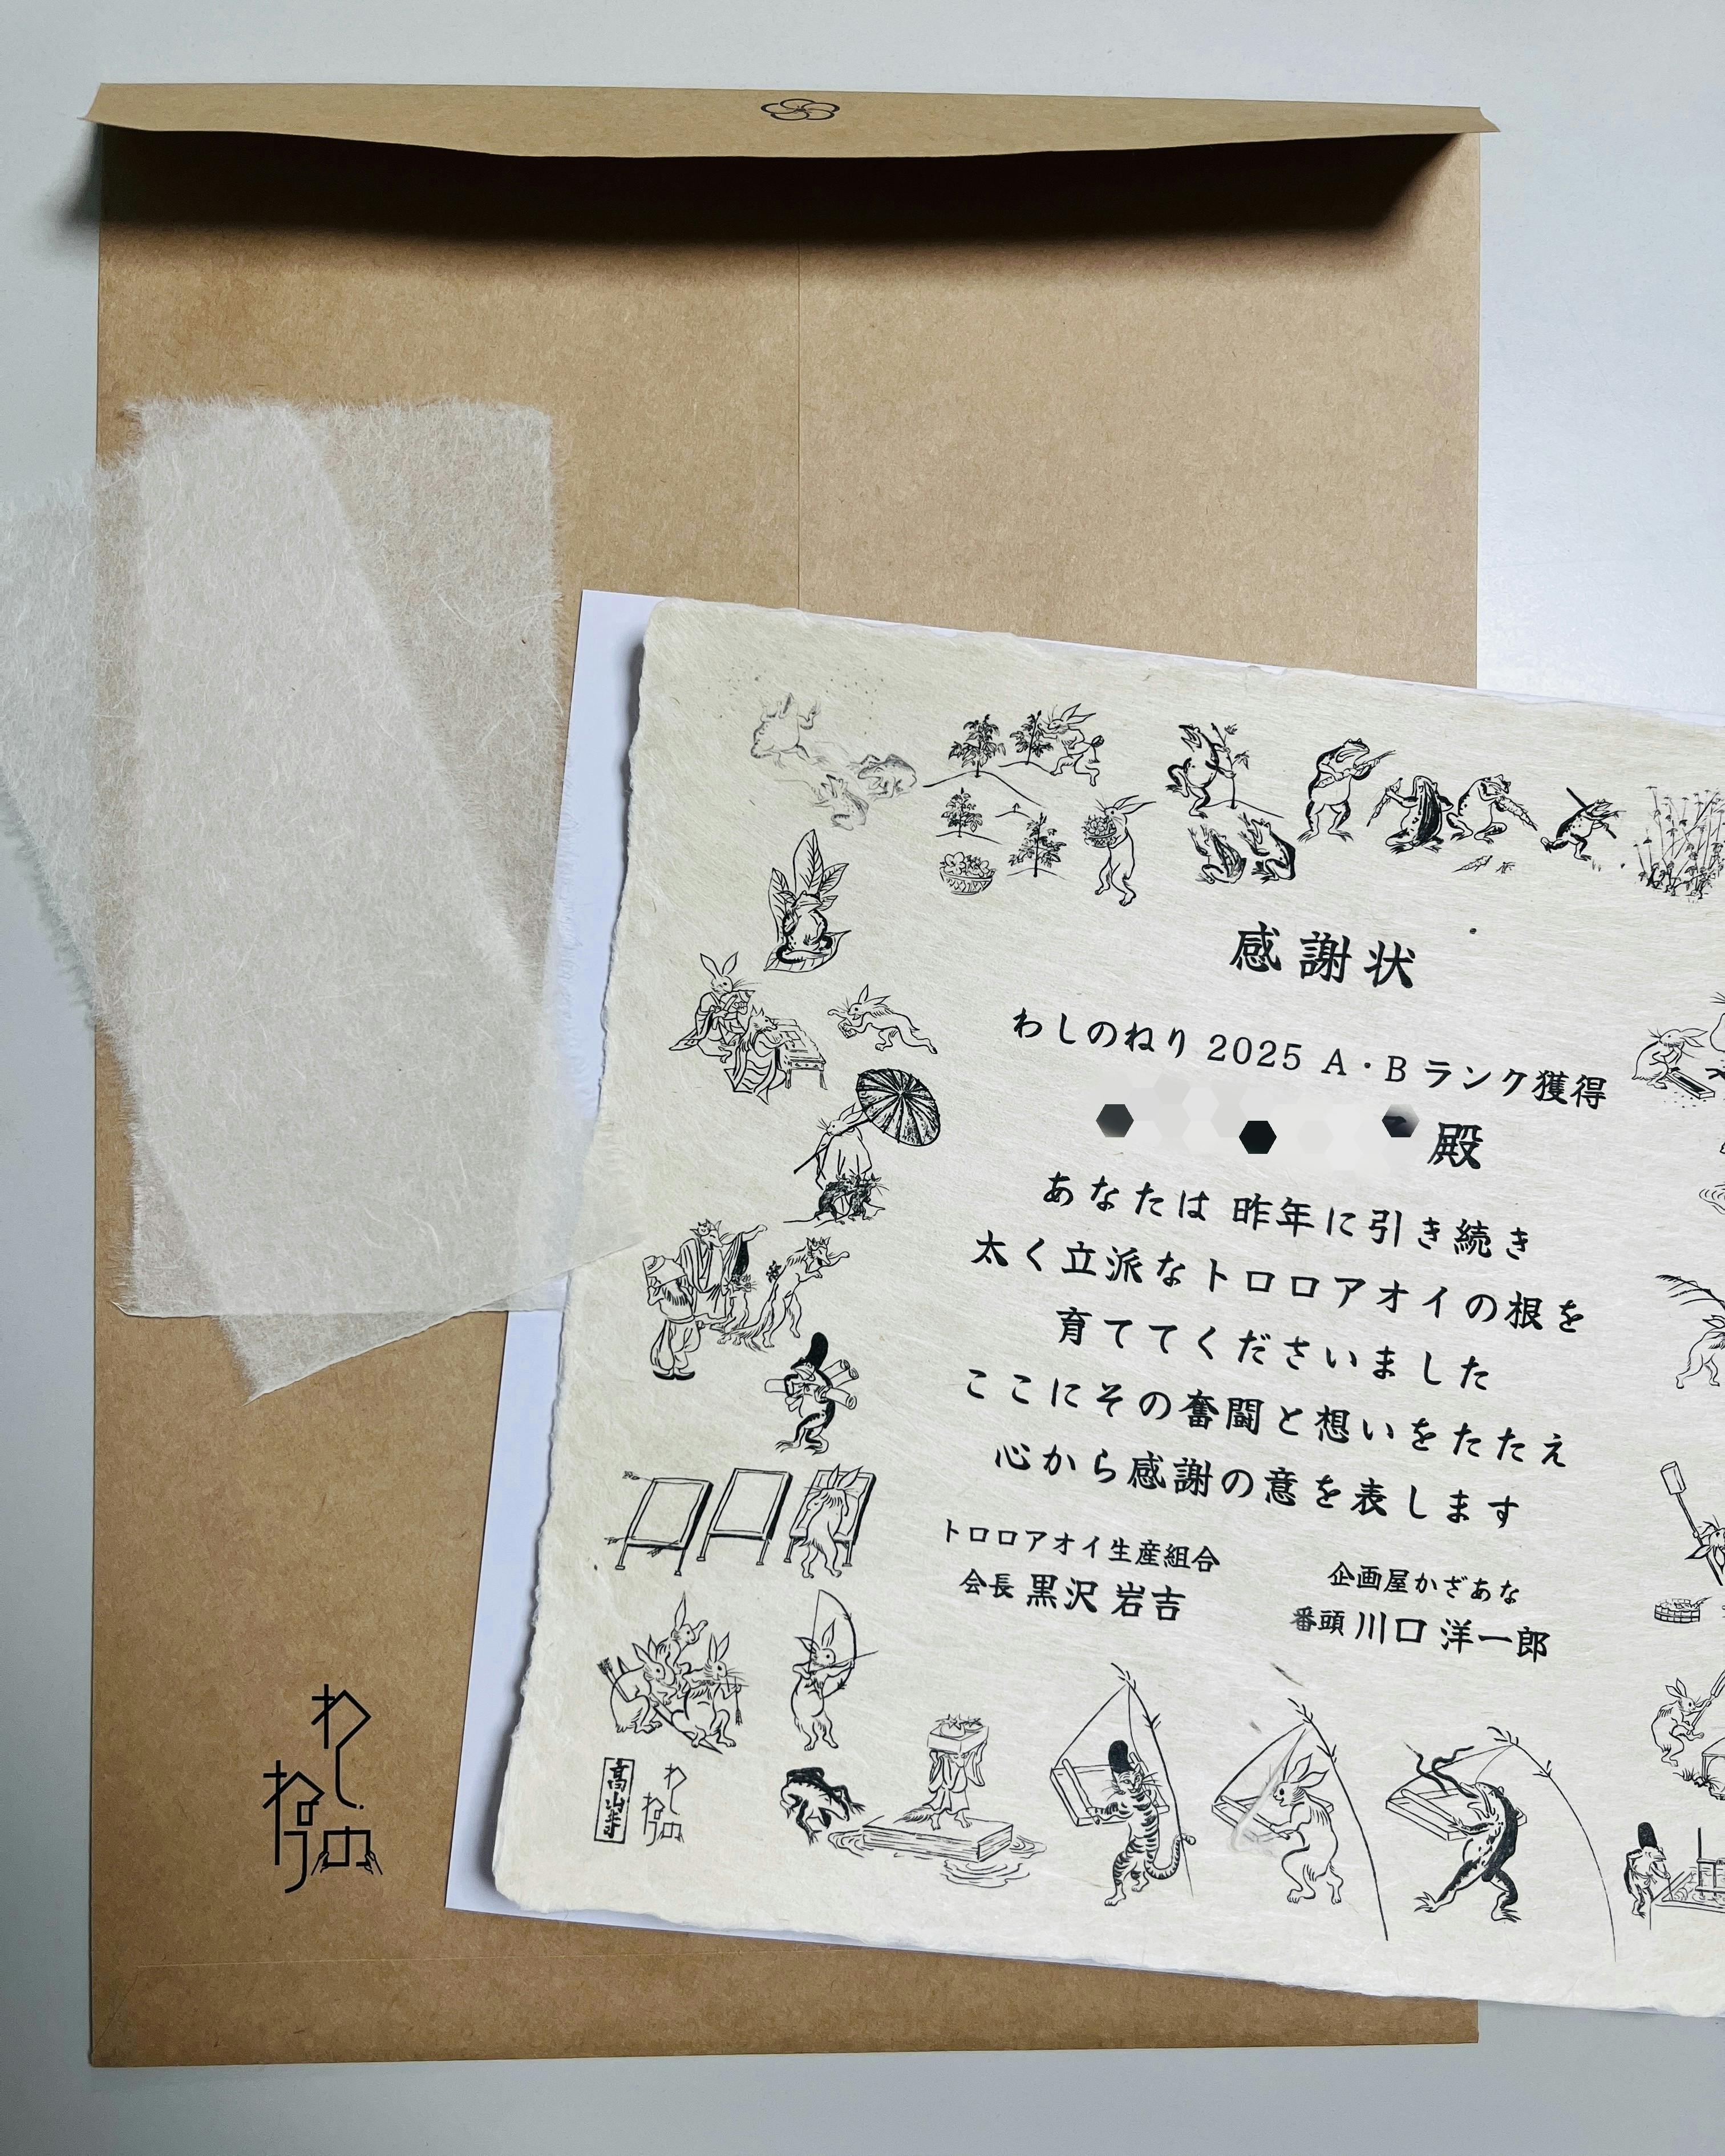 感謝状
わしのねり 2025 A・B ランク獲得
殿
あなたは 昨年に引き続き
太く立派なトロロアオイの根を
育ててくださいました
ここにその奮闘と想いをたたえ
心から感謝の意を表します
トロロアオイ生産組合
会長 黒沢 岩吉
企画屋かざあな
番頭 川口 洋一郎
高山寺
わしのねり
わしのねり